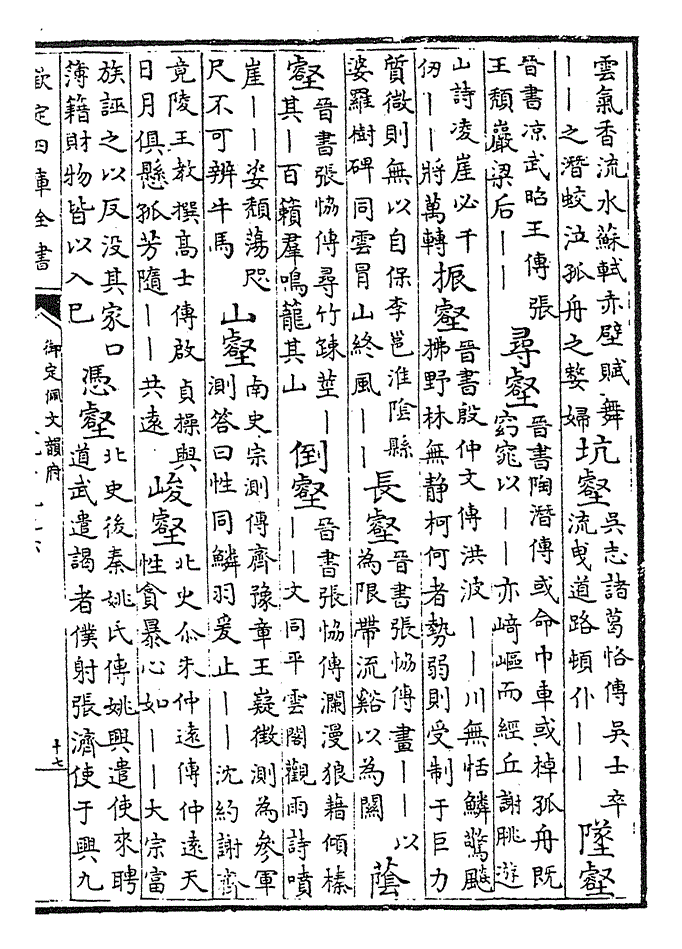 雲氣香流水蘇軾赤壁賦舞
——之潛蛟泣孤舟之嫠婦
坑壑
吳志諸葛恪傳吳士卒
流曳道路頓仆——
墜壑
晉書凉武昭王傳張
王頽巖梁后——
尋壑
晉書陶潛傳或命巾車或棹孤舟既
窈窕以——亦﨑嶇而經丘謝朓遊
山詩凌崖必千
仞——將萬轉
振壑
晉書殷仲文傳洪波——川無恬鱗驚飈
拂野林無静柯何者勢弱則受制于巨力
質微則無以自保李邕淮陰縣
婆羅樹碑同雲冒山終風——
長壑
晉書張恊傳畫——以
為限帶流谿以為闗
蔭
壑
晉書張恊傳尋竹竦莖—
其—百籟羣鳴籠其山
倒壑
晉書張恊傳瀾漫狼藉傾榛
——文同平雲閣觀雨詩噴
崖——姿頽蕩咫
尺不可辨牛馬
山壑
南史宗測傳齊豫章王嶷徴測為參軍
測答曰性同鱗羽爰止——沈約謝齊
竟陵王教撰髙士傳啟貞操與
日月俱懸孤芳隨——共遠
峻壑
北史尒朱仲遠傳仲遠天
性貪暴心如——大宗富
族誣之以反没其家口
簿籍財物皆以入已
憑壑
北史後秦姚氏傳姚興遣使來聘
道武遣謁者僕射張濟使于興九
欽定四庫全書
御定佩文韻府
十七